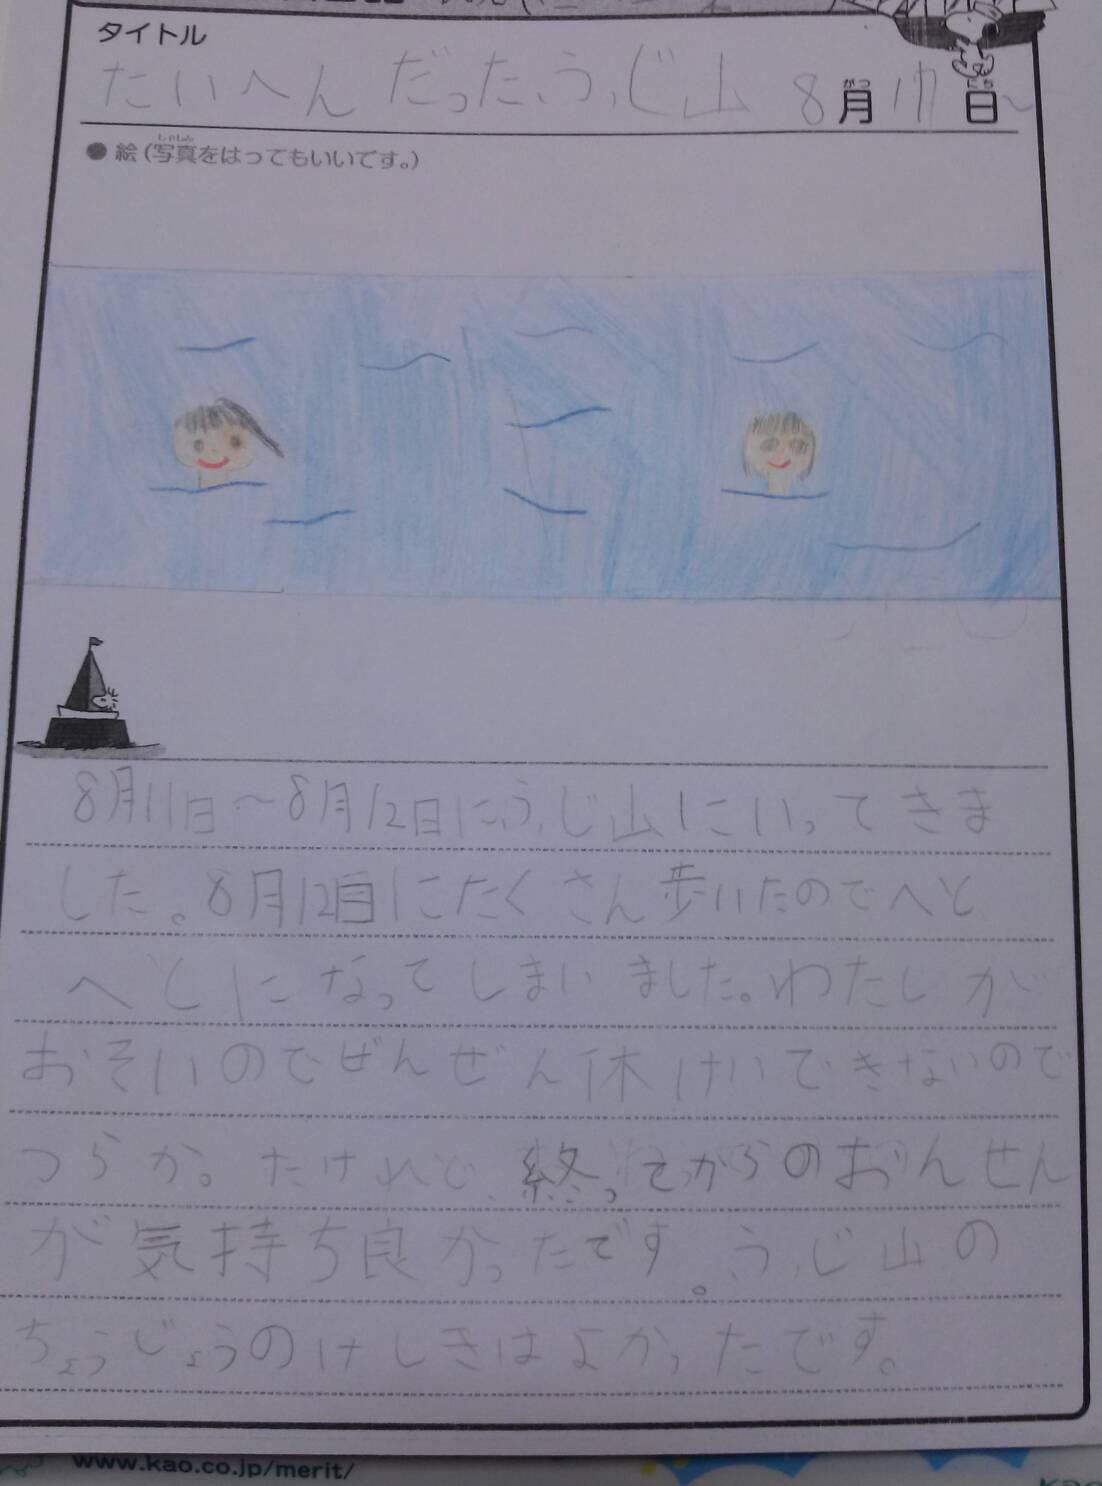 タイトル
たいへんだったふじ山 8月11日〜
がつ にち
しゃしん
●絵(写真をはってもいいです。)
8月11日〜8月12日にふじ山にいってきま
した。8月12日にたくさん歩いたのでへと
へとになってしまいました。わたしが
おそいのでぜんぜん休けいできないので
つらか。たけれど、終ってからのおんせん
が気持ち良かったです。ふじ山の
ちょうじょうのけしきはよかったです。
www.kao.co.jp/merit/
kao